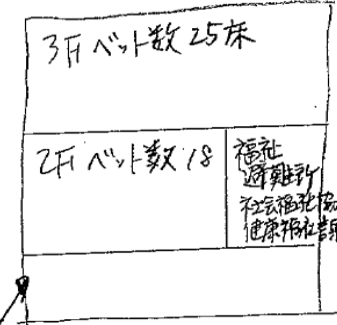 3F ベット数 25床
2F ベット数 18
福祉
避難所
社会福祉協
健康福祉